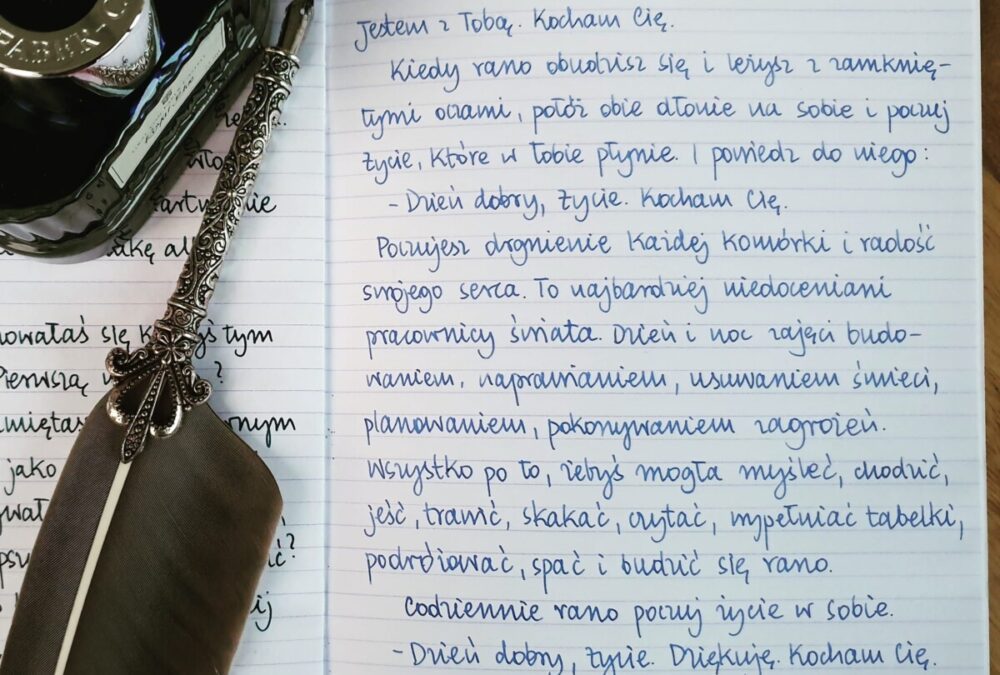 FABRIC
Jestem z Tobą. Kocham Cię.
Kiedy rano obudzisz się i leżysz z zamknię-
tymi oczami, połóż obie dłonie na sobie i poczuj
życie, które w Tobie płynie. I powiedz do niego:
- Dzień dobry, życie. Kocham Cię.
Poczujesz drgnienie każdej komórki i radość
swojego serca. To najbardziej niedoceniani
pracownicy świata. Dzień i noc zajęci budo-
waniem, naprawianiem, usuwaniem śmieci,
planowaniem, pokonywaniem zagrożeń.
Wszystko po to, żebyś mogła myśleć, chodzić,
jeść, trawić, skakać, czytać, wypełniać tabelki,
podróżować, spać i budzić się rano.
Codziennie rano poczuj życie w sobie.
- Dzień dobry, życie. Dziękuję. Kocham Cię.
się
tym
?
jako